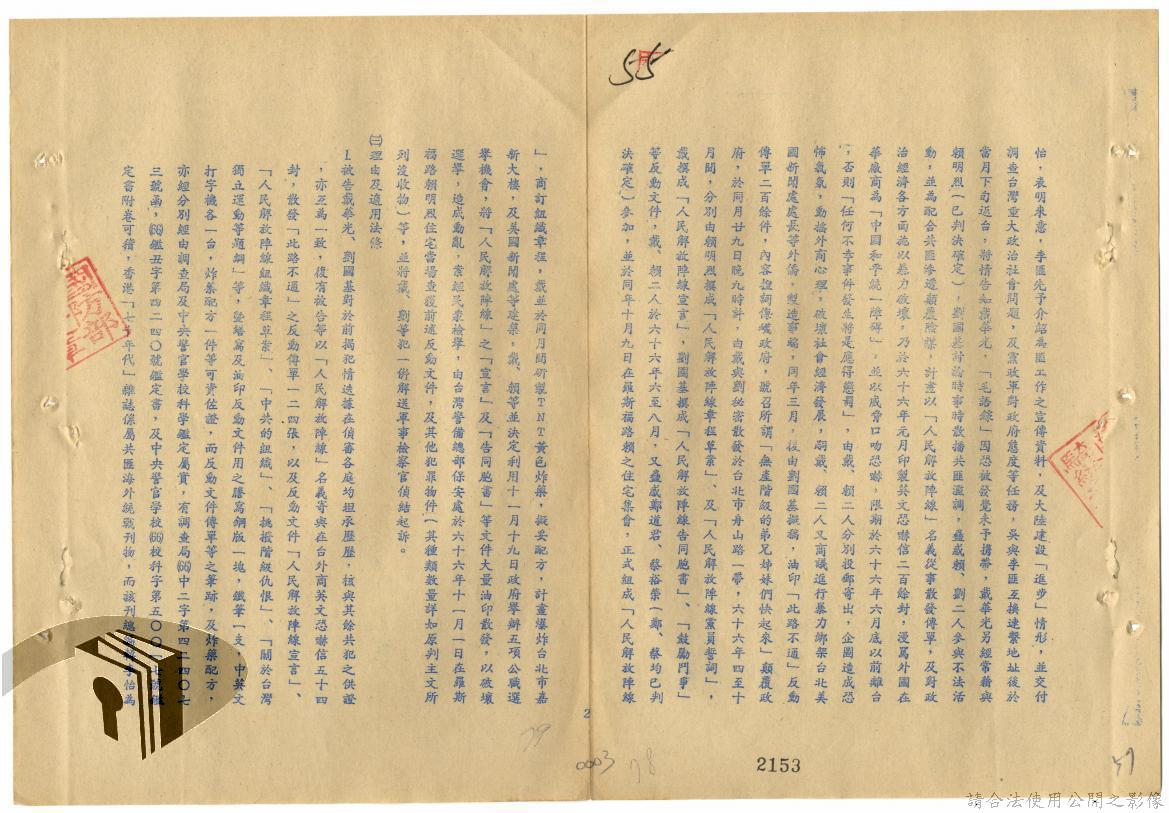 55
怡，表明來意，李匪先予介紹為匪工作之宣傳資料，及大陸建設「進步」情形，並交付
調查台灣重大政治社會問題，及黨政軍對政府態度等任務，吳與李匪互換連繫地址後於
當月下旬返台，將情告知戴華光，「毛語錄」因恐被發覺未予攜帶，戴華光另經常藉與
賴明烈（已判決確定），劉國基討論時事時散播共匪濫調，蠱惑賴、劉二人參與不法活
動，並為配合共匪滲透顛覆陰謀，計畫以「人民解放陣線」名義從事散發傳單，及對政
治經濟各方面施以暴力破壞，乃於六十六年元月印製英文恐嚇信二百餘封，謾罵外國在
華廠商為「中國和平統一障碍」，並以威脅口吻恐嚇，限期於六十六年六月底以前離台
，否則「任何不幸事件發生將是應得懲罰」，由戴、賴二人分別投郵寄出，企圖造成恐
怖氣氛，動搖外商心理，破壞社會經濟發展，嗣戴、賴二人又商議進行暴力綁架台北美
國新聞處處長等外僑，製造事端，同年三月，復由劉國基擬稿，油印「此路不通」反動
傳單二百餘件，內容詆譭傳嶁政府，號召所謂「無產階級的弟兄姊妹們快起來」顛覆政
府，於同月廿九日晚九時許，由戴與劉秘密散發於台北市舟山路一帶，六十六年四至十
月間，分別由賴明烈撰成「人民解放陣線章程草案」、及「人民解放陣線黨員誓詞」，
戴撰成「人民解放陣線宣言」，劉國基撰成「人民解放陣線告同胞書」、「鼓勵鬥爭」
等反動文件，戴、賴二人於六十六年六至八月，又蠱惑鄭道君、蔡裕榮（鄭、蔡均已判
決確定）參加，並於同年十月九日在羅斯福路賴之住宅集會，正式組成「人民解放陣線
2153
」，商訂組織章程，戴並於同月間研製ＴＮＴ黃色炸藥，擬妥配方，計畫爆炸台北市嘉
新大樓，及美國新聞處等建築，戴、賴等並決定利用十一月十九日政府舉辦五項公職選
舉機會，將「人民解放陣線」之「宣言」及「告同胞書」等文件大量油印散發，以破壞
選舉，造成動亂，案經民眾檢舉，由台灣警備總部保安處於六十六年十一月一日在羅斯
福路賴明烈住宅當場查獲前述反動文件，及其他犯罪物件（其種類數量詳如原判主文所
列沒收物）等，並將戴、劉等犯一併解送軍事檢察官偵結起訴。
㈢理由及適用法條
1.被告戴華光、劉國基對於前揭犯情迭據在偵審各庭均坦承歷歷，核與其餘共犯之供證
，亦互為一致，復有被告等以「人民解放陣線」名義寄與在台外商英文恐嚇信五十四
封，散發「此路不通」之反動傳單一二四張，以及反動文件「人民解放陣線宣言」、
「人民解放陣線組織章程草案」、「中共的組織」、「挑撥階級仇恨」、「關於台灣
獨立運動等題綱」等，暨繕寫及油印反動文件用之謄寫鋼版一塊，鐵筆一支，中英文
打字機各一台，炸藥配方一件等可資佐證，而反動文件傳單等之筆跡，及炸藥配方，
亦經分別經由調查局及中央警官學校科學鑑定屬實，有調查局㊅中二字第四二四〇七
三號函，鑑丑字第四二四〇號鑑定書，及中央警官學校校科字第五〇〇一七號鑑
定書附卷可稽，香港「七十年代」雜誌係屬共匪海外統戰刊物，而該刊總編輯李怡為
2
0003
78
79
請合法使用公開之影像